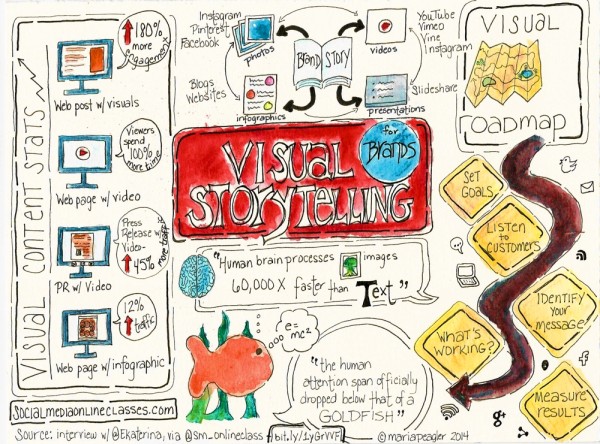 VISUAL CONTENT STATS
180%
more
engagement
Web post w/ visuals
Viewers
spend
100%
more time
Web page w/ video
Press
Release w/
Video-
45%
more traffic
PR w/ Video
12%
traffic
Web page w/ infographic
Socialmediaonlineclasses.com
Source: interview w/ @Ekaterina, via @sm_onlineclass
bit.ly/1yGrWVF
©mariapeagler 2014
Instagram
Pinterest
Facebook
photos
Blogs
Websites
infographics
BRAND STORY
videos
YouTube
Vimeo
Vine
Instagram
presentations
Slideshare
VISUAL
STORYTELLING
for
Brands
"Human brain processes images
60,000X faster than Text"
e=
mc²
"the human
attention span officially
dropped below that of a
GOLDFISH"
VISUAL
ROADMAP
SET
GOALS
LISTEN
to
CUSTOMERS
IDENTIFY
YOUR
MESSAGE
WHAT'S
WORKING?
MEASURE
RESULTS
f
g+